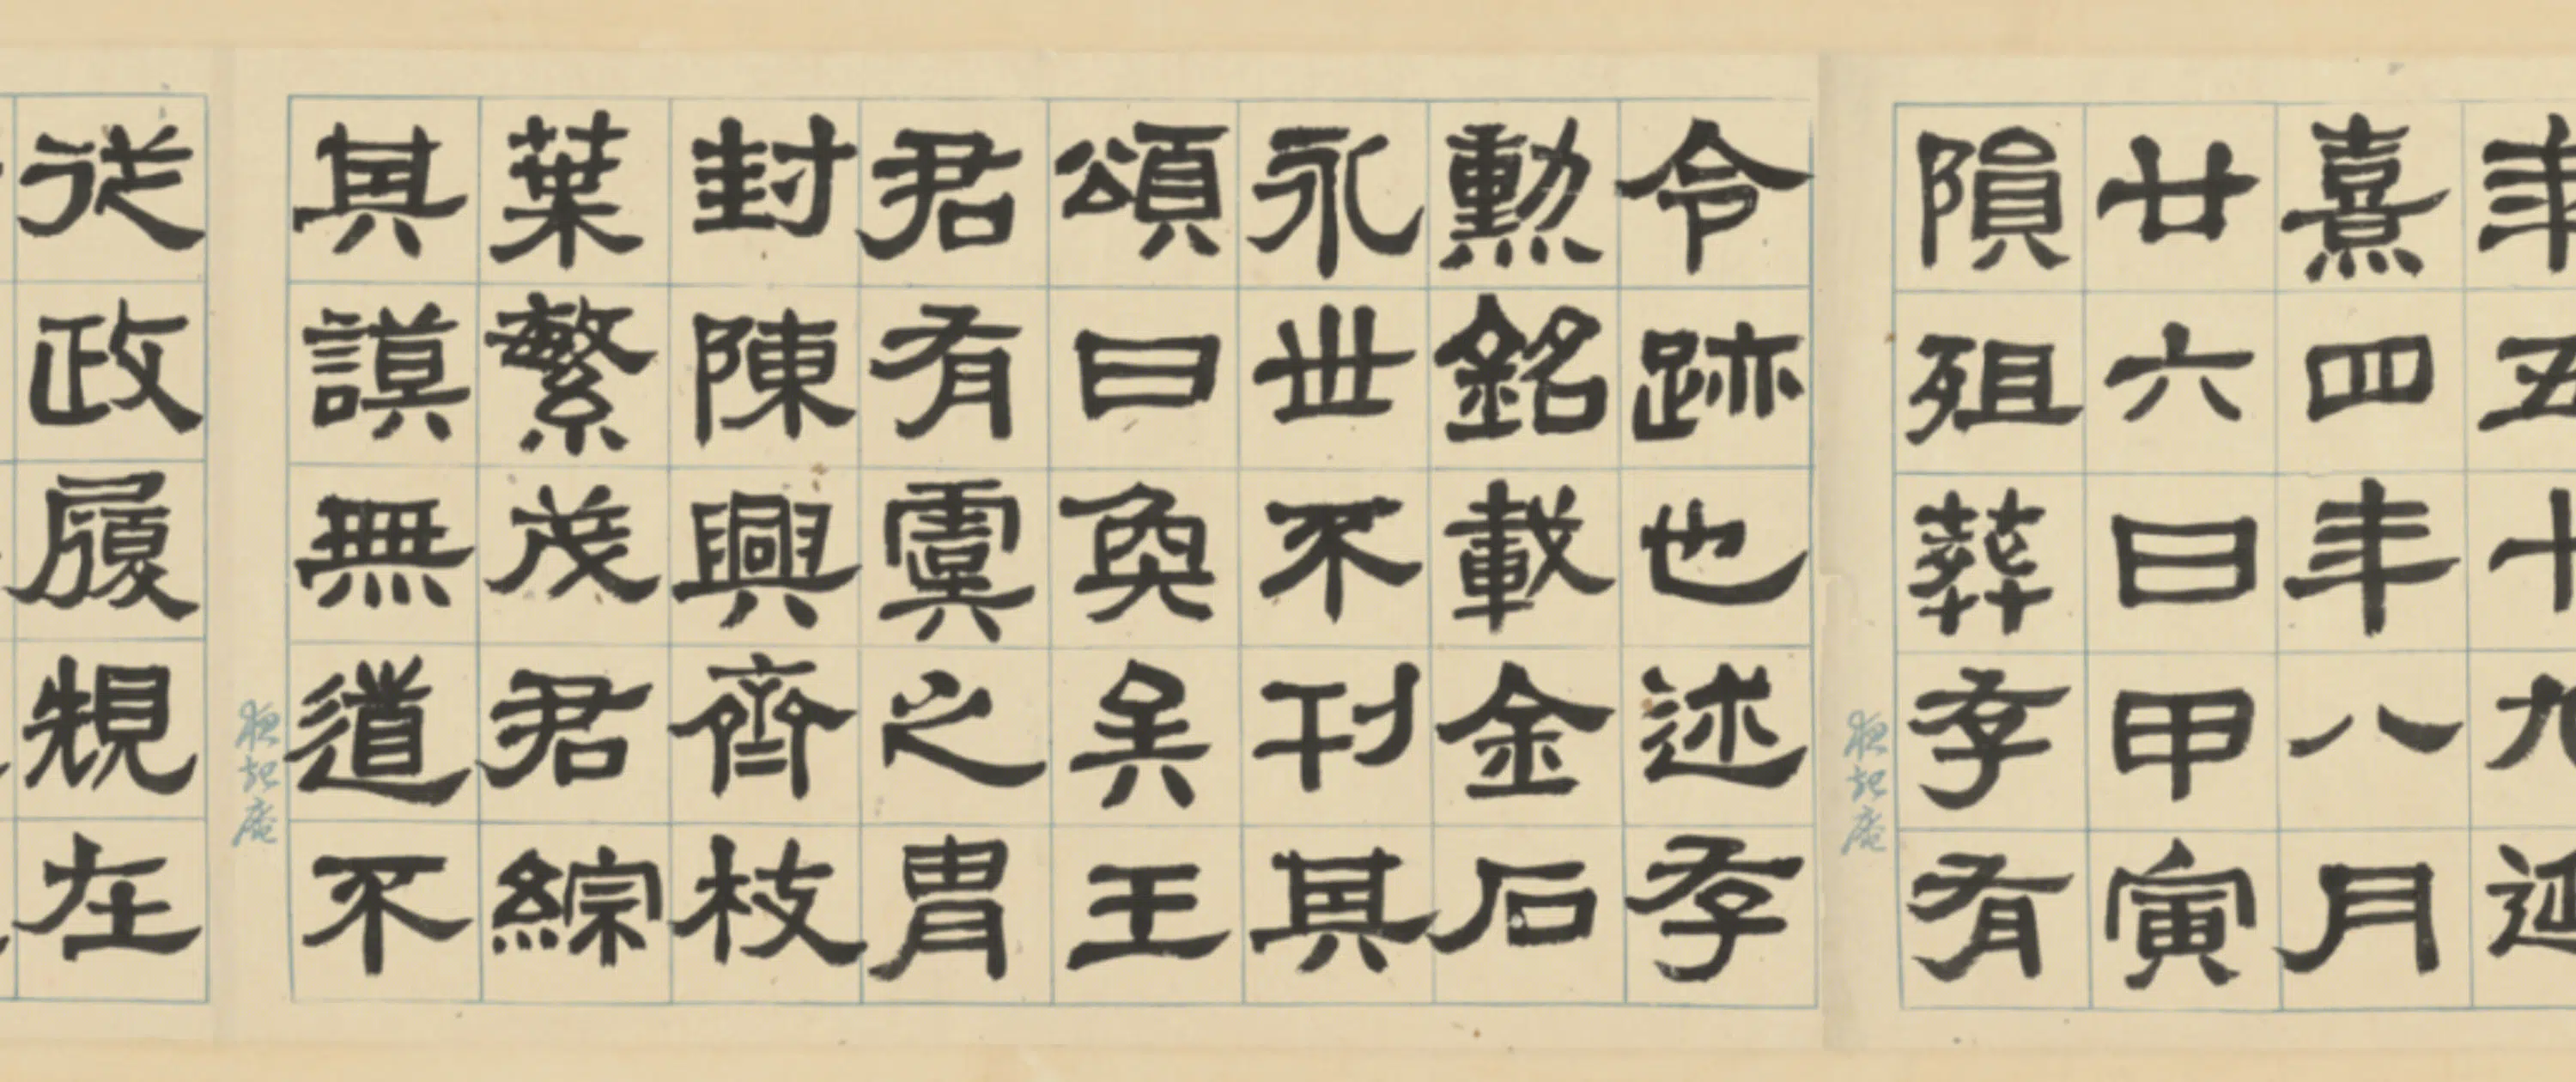 年五十九延
熹四年八月
廿六日甲寅
隕殂葬孝有
令跡也述孝
勲銘載金石
永世不刊其
頌曰奐矣王
君有虞之胄
封陳興齊枝
葉繁茂君綜
其謨無道不
從政履規在